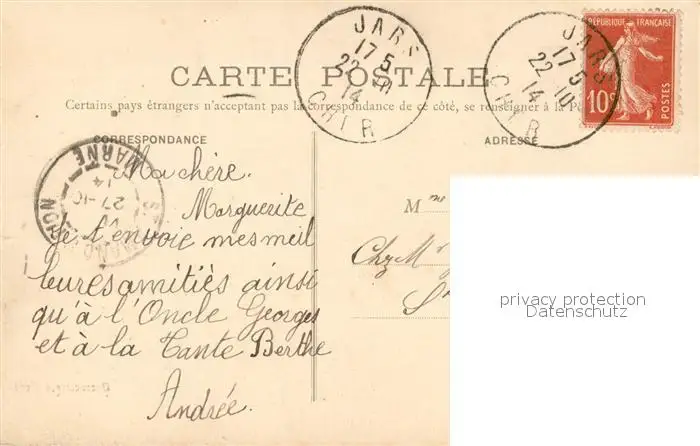 CARTE POSTALE
Certains pays étrangers n'acceptant pas la correspondance de ce côté, se renseigner à la
CORRESPONDANCE
ADRESSE
JARS
17 5
22 10
14
CHER
JARS
17 5
22 10
14
CHER
RÉPUBLIQUE FRANÇAISE
10c
POSTES
MARNE
14
27-10
Ma chère
Marguerite
Je t'envoie mes meil
leures amitiès ainsi
qu'à l'Oncle Georges
et à la Tante Berthe
Andrée.
Mme
Chez Mr
privacy protection
Datenschutz